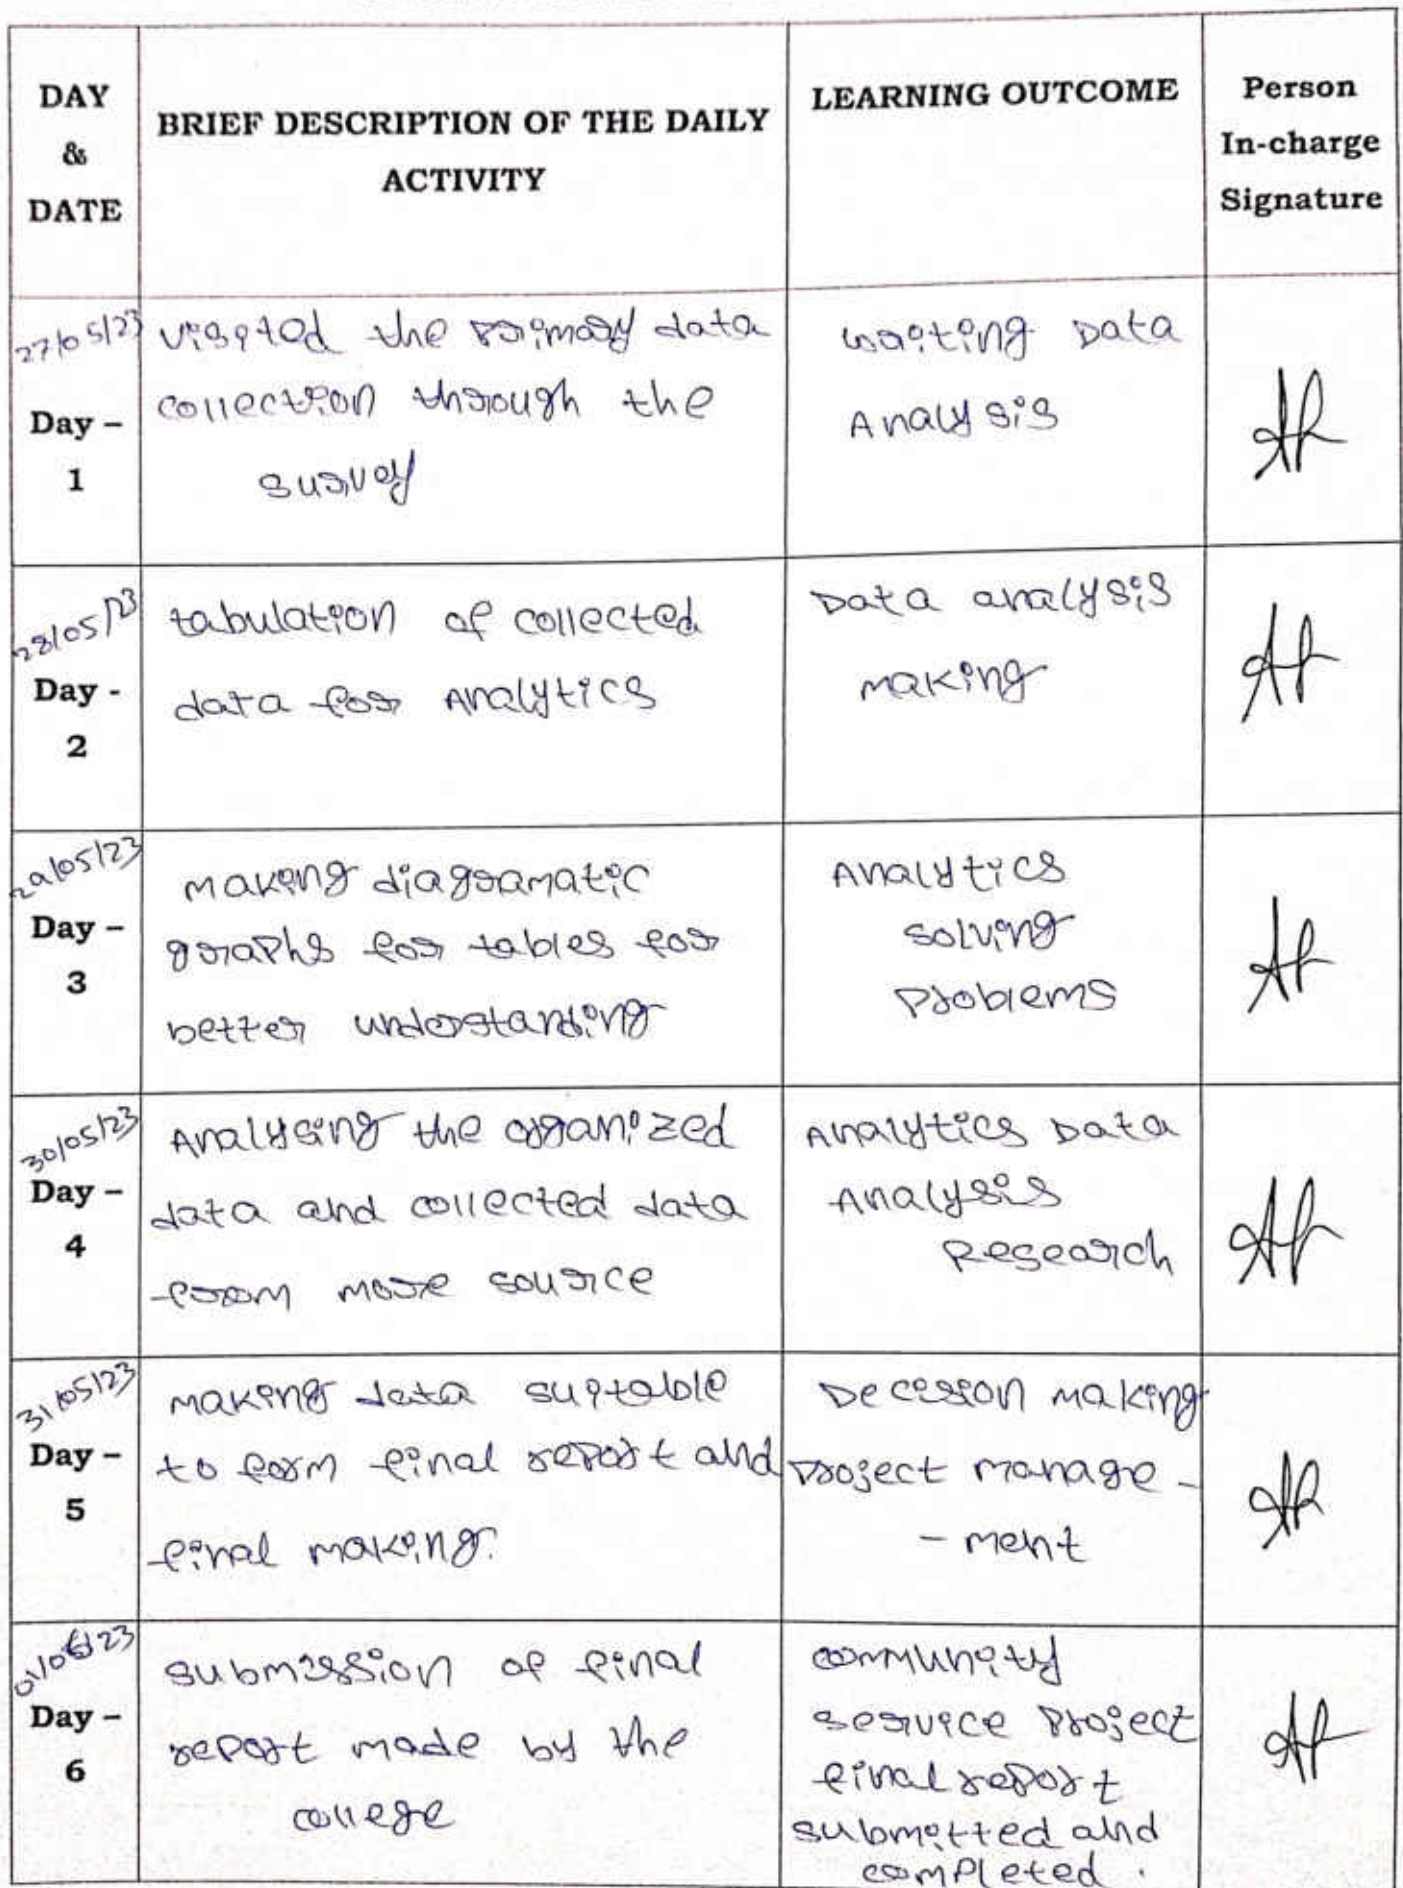 DAY
&
DATE
BRIEF DESCRIPTION OF THE DAILY
ACTIVITY
LEARNING OUTCOME
Person
In-charge
Signature
27/05/23
Day –
1
visited the primary data
collection through the
survey
writing Data
Analysis
28/05/23
Day -
2
tabulation of collected
data for Analytics
Data analysis
making
29/05/23
Day –
3
making diagramatic
graphs for tables for
better understanding
Analytics
solving
problems
30/05/23
Day –
4
Analysing the organized
data and collected data
from more source
Analytics Data
Analysis
Research
31/05/23
Day –
5
making data suitable
to form final report and
final making.
Decession making
project manage -
- ment
01/06/23
Day –
6
submission of final
report made by the
college
community
service project
final report
submitted and
completed .